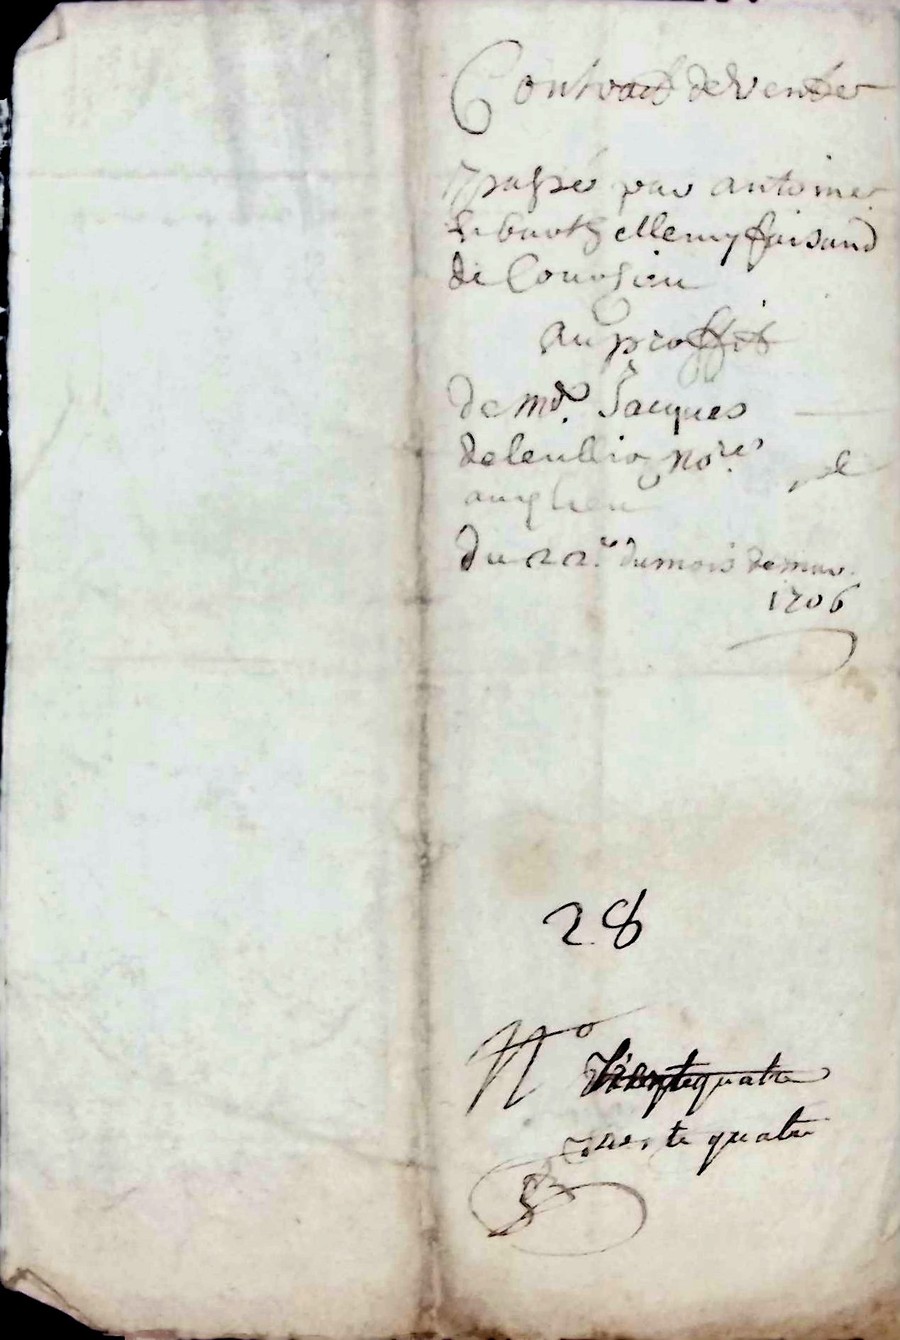 Contract de vente
passé par antoine
& barthellemy faisand
de Courzieu
au proffit
de mr. Jacques
deleullio nore.
audlieu
du 22e. du mois de mar.
1706
28
No Trente quatre
trente quatre